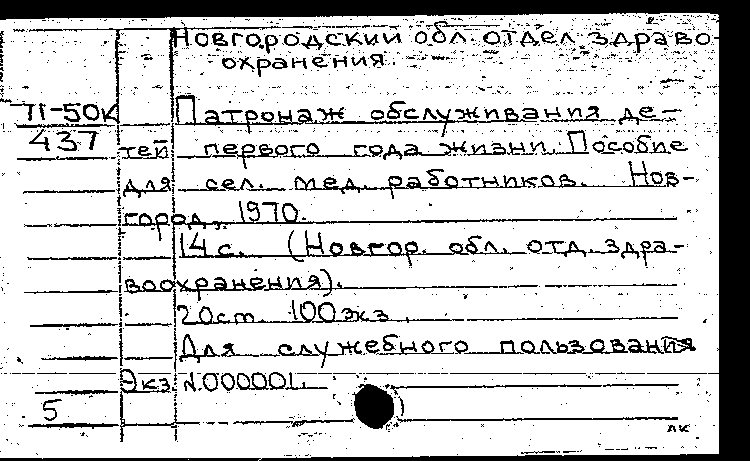 Новгородский обл. отдел здраво-
охранения.
71-50к
437
Патронаж обслуживания де-
тей первого года жизни. Пособие
для сел. мед. работников. Нов-
город, 1970.
14 с. (Новгор. обл. отд. здра-
воохранения).
20 cm 100 экз.
Для служебного пользования
Экз N.000001.
5
лк